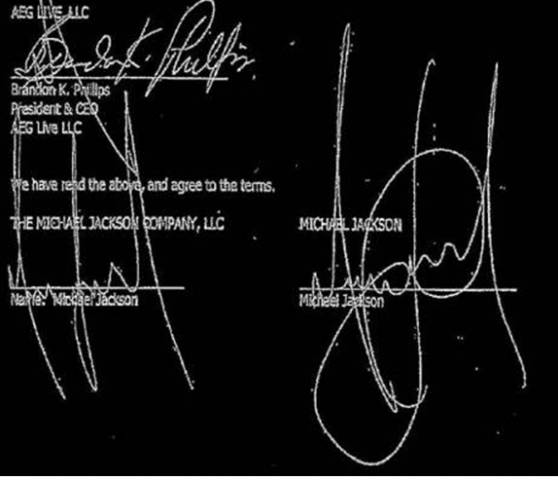 AEG LIVE, LLC
Brandon K. Phillips
President & CEO
AEG Live LLC
We have read the above, and agree to the terms.
THE MICHAEL JACKSON COMPANY, LLC
MICHAEL JACKSON
Name: Michael Jackson
Michael Jackson